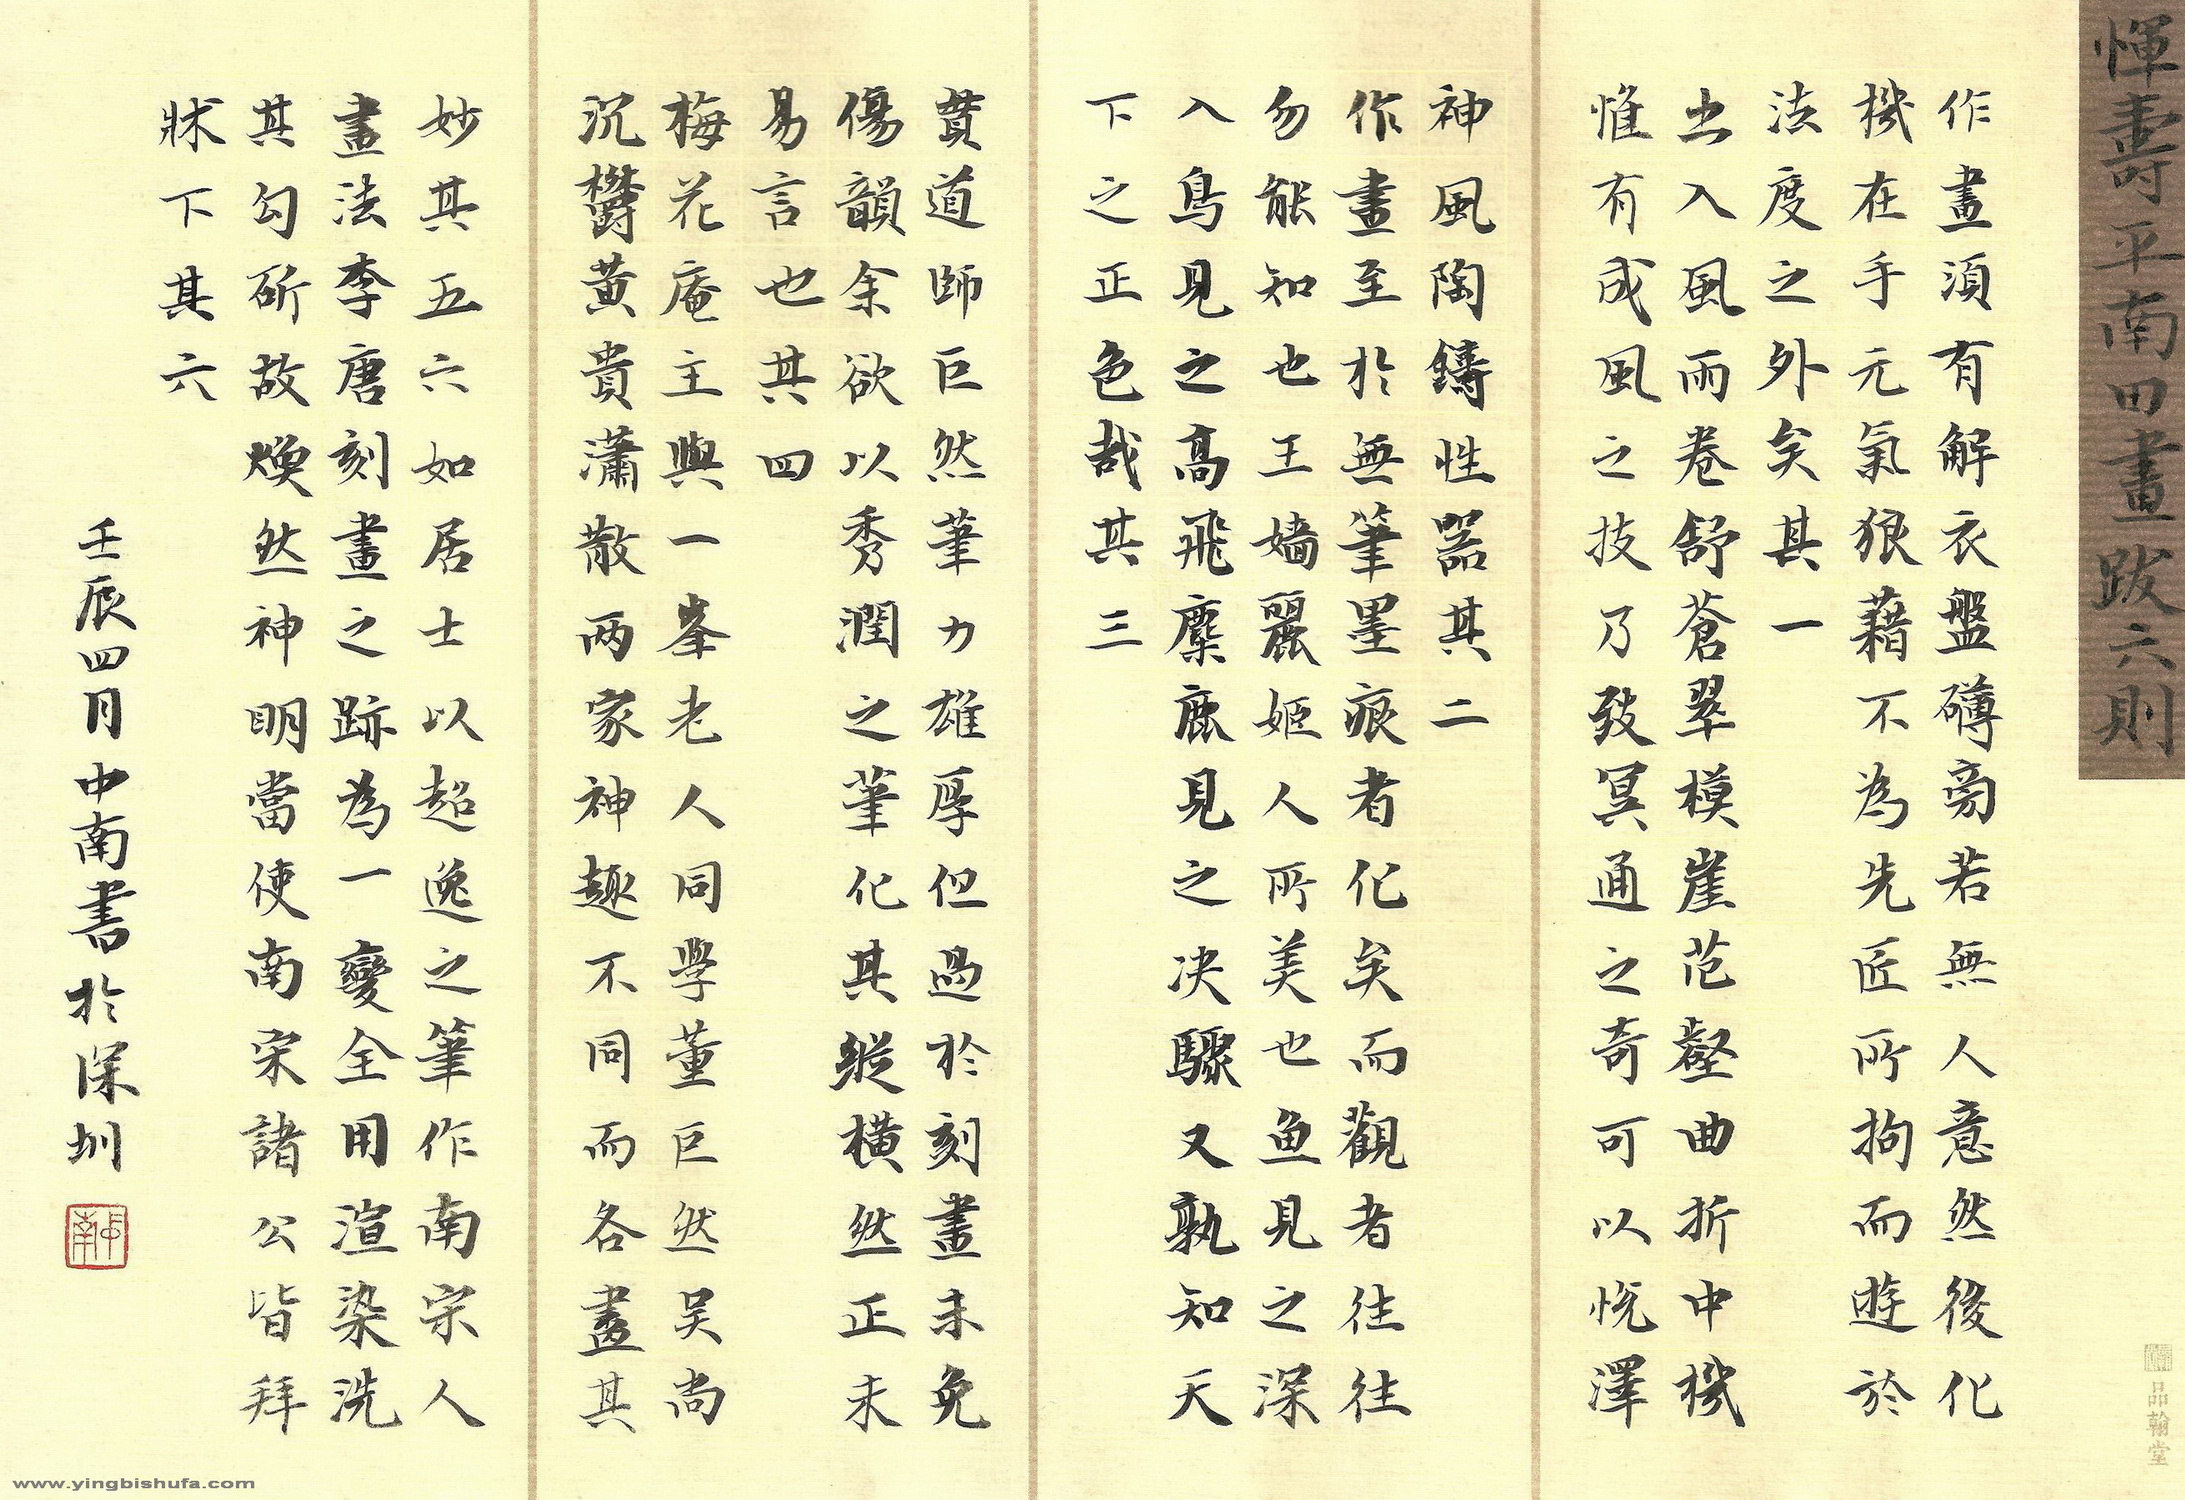 惲壽平南田畫跋六則
作畫須有解衣盤礴旁若無人意然後化
機在手元氣狼藉不為先匠所拘而遊於
法度之外矣其一
出入風雨卷舒蒼翠模崖范壑曲折中機
惟有成風之技乃致冥通之奇可以悅澤
神風陶鑄性器其二
作畫至於無筆墨痕者化矣而觀者往往
勿能知也王嬙麗姬人所美也鱼見之深
入鳥見之高飛麋鹿見之决驟又孰知天
下之正色哉其三
貫道師巨然筆力雄厚但過於刻畫未免
傷韻余欲以秀潤之筆化其縱橫然正未
易言也其四
梅花庵主與一峯老人同學董巨然吴尚
沉鬱黃貴瀟散两家神趣不同而各盡其
妙其五六如居士以超逸之筆作南宗人
畫法李唐刻畫之跡為一變全用渲染洗
其勾斫故煥然神明當使南宋諸公皆拜
牀下其六
壬辰四月中南書於深圳
品翰堂
www.yingbishufa.com